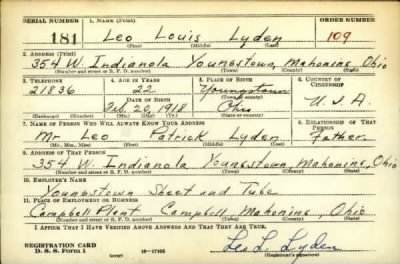 SERIAL NUMBER 1. NAME (Print) ORDER NUMBER
181 Leo Louis Lyden 109
(First) (Middle) (Last)
2. ADDRESS (Print)
354 W. Indianola Youngstown, Mahoning Ohio
(Number and street or R. F. D. number) (Town) (County) (State)
3. TELEPHONE 4. AGE IN YEARS 5. PLACE OF BIRTH 6. COUNTRY OF CITIZENSHIP
21836 22 Youngstown
(Town or county)
DATE OF BIRTH
Feb. 20, 1918 Ohio U.S.A
(Exchange) (Number) (Mo.) (Day) (Yr.) (State or country)
7. NAME OF PERSON WHO WILL ALWAYS KNOW YOUR ADDRESS 8. RELATIONSHIP OF THAT PERSON
Mr Leo Patrick Lyden Father
(Mr., Mrs., Miss) (First) (Middle) (Last)
9. ADDRESS OF THAT PERSON
354 W. Indianola Youngstown, Mahoning, Ohio
(Number and street or R. F. D. number) (Town) (County) (State)
10. EMPLOYER'S NAME
Youngstown Sheet and Tube
11. PLACE OF EMPLOYMENT OR BUSINESS
Campbell Plant Campbell, Mahoning, Ohio
(Number and street or R. F. D. number) (Town) (County) (State)
I AFFIRM THAT I HAVE VERIFIED ABOVE ANSWERS AND THAT THEY ARE TRUE.
REGISTRATION CARD
D. S. S. Form 1 (over) 16—17105 Leo L. Lyden
(Registrant's signature)